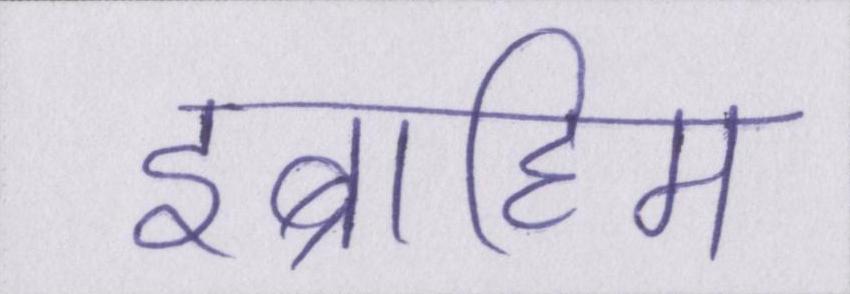 इब्राहिम